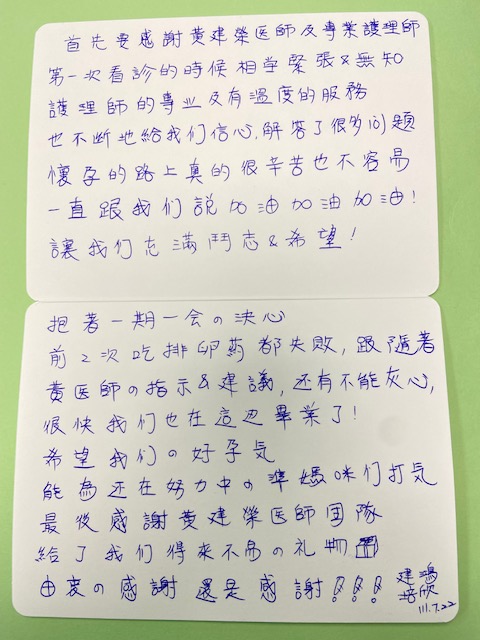 首先要感謝黃建榮医師及專業護理師
第一次看診的時候相當緊張&無知
護理師的專业及有溫度的服務
也不断地給我们信心,解答了很多问題
懷孕的路上真的很辛苦也不容易
一直跟我们說加油加油加油!
讓我们充滿鬥志&希望!
抱著一期一会の決心
前2次吃排卵药都失敗,跟隨著
黃医師の指示&建議,还有不能灰心,
很快我们也在這边畢業了!
希望我们の好孕気
能為还在努力中の準媽咪们打気
最後感謝黃建榮医師团隊
給了我们得來不易の礼物
由衷の感謝 還是感謝!!!
建鴻
培欣
111.7.22